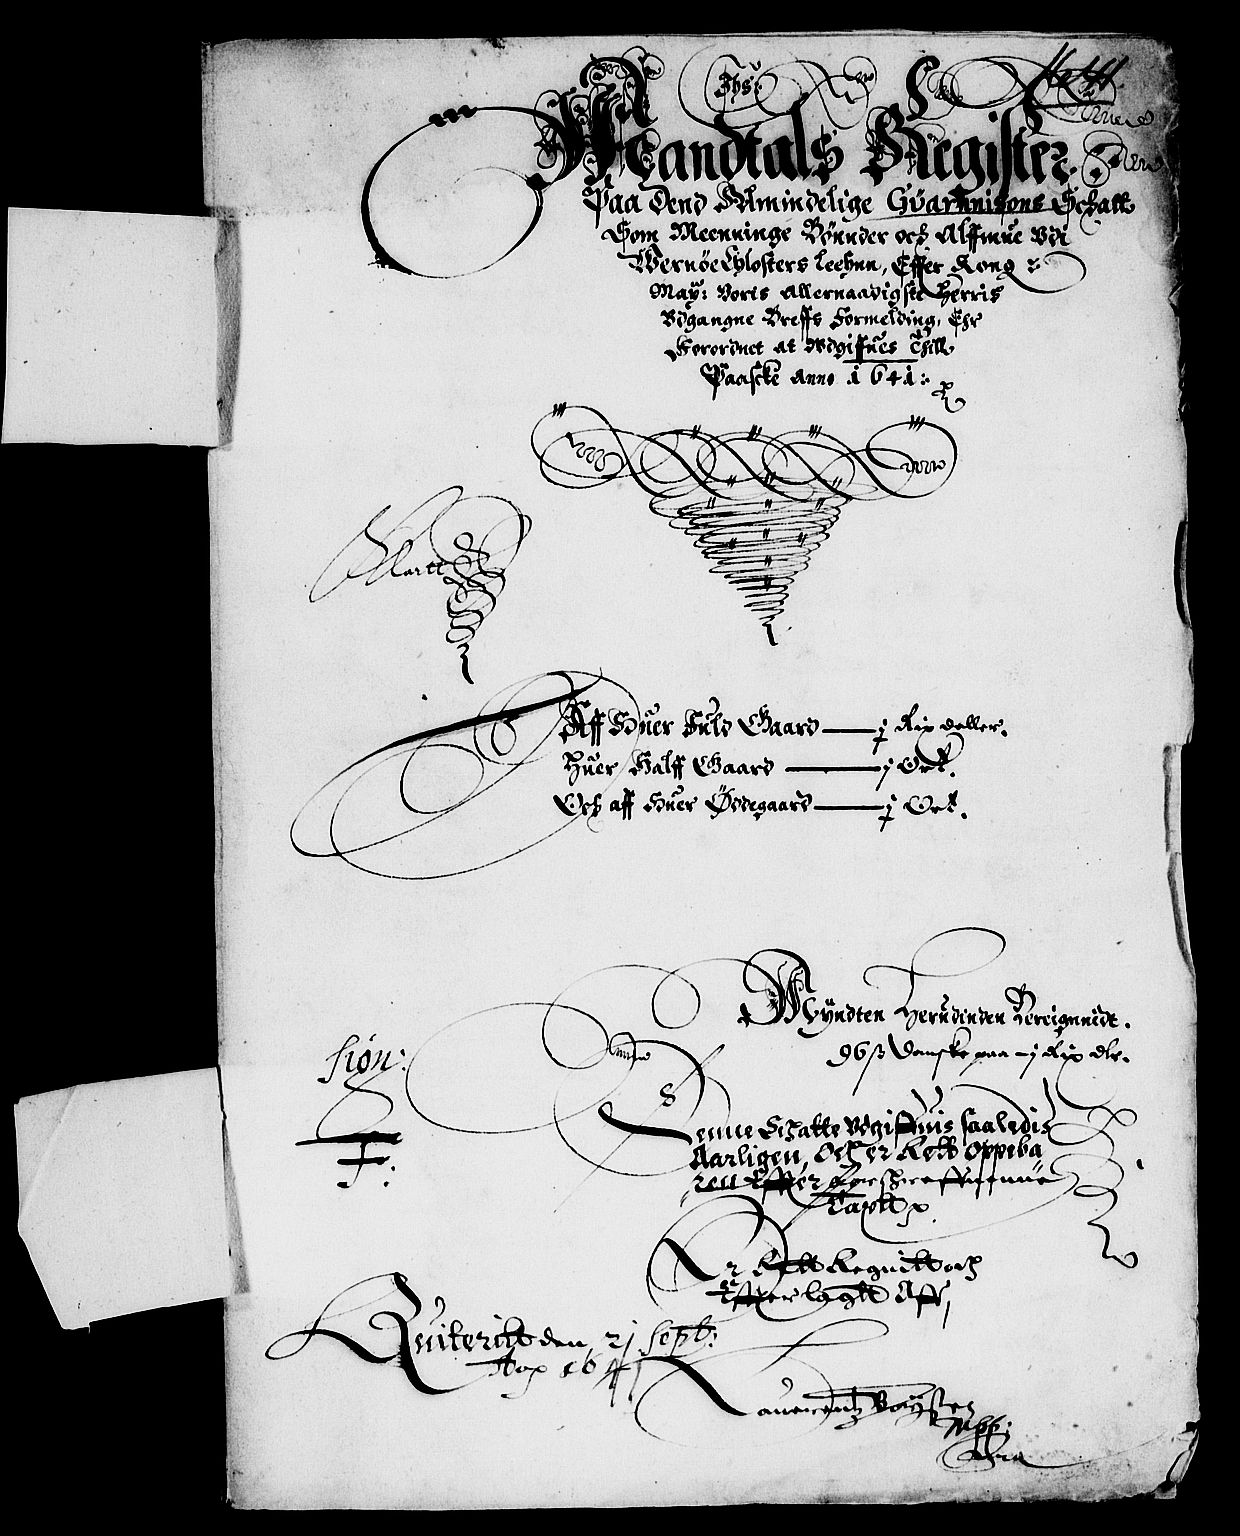 Jhs:
Mandtals Register
Paa Dend Almindelige Guarnisons Schatt
Som Meenninge Bønnder och Allffmue Udi
Wernøe Closters Leehnn, Effter Kong:
May: Voris Allernaadigste Herris
Udgangne Breffs Formelding, Ehr
Forordnet at Udgiffues Thill
Paascke Anno 1641:
Aff Huer Fuld Gaard — j Rix daller.
Huer Halff Gaard — j Ort.
Och aff Huer Ødegaard — j Ort.
Myndten Herudinden Bereignnidt.
96 ß Danske paa j Rix dlr.
Denne Schatte Udgiffuis saaledis
Aarligen, Och er Rett Oppeba
ren Effter
Er Rett Regnitt och
Effter lagtt Aff,
Quiterit den 21 Sept:
Ao 1641
Laurentz
Mpp: